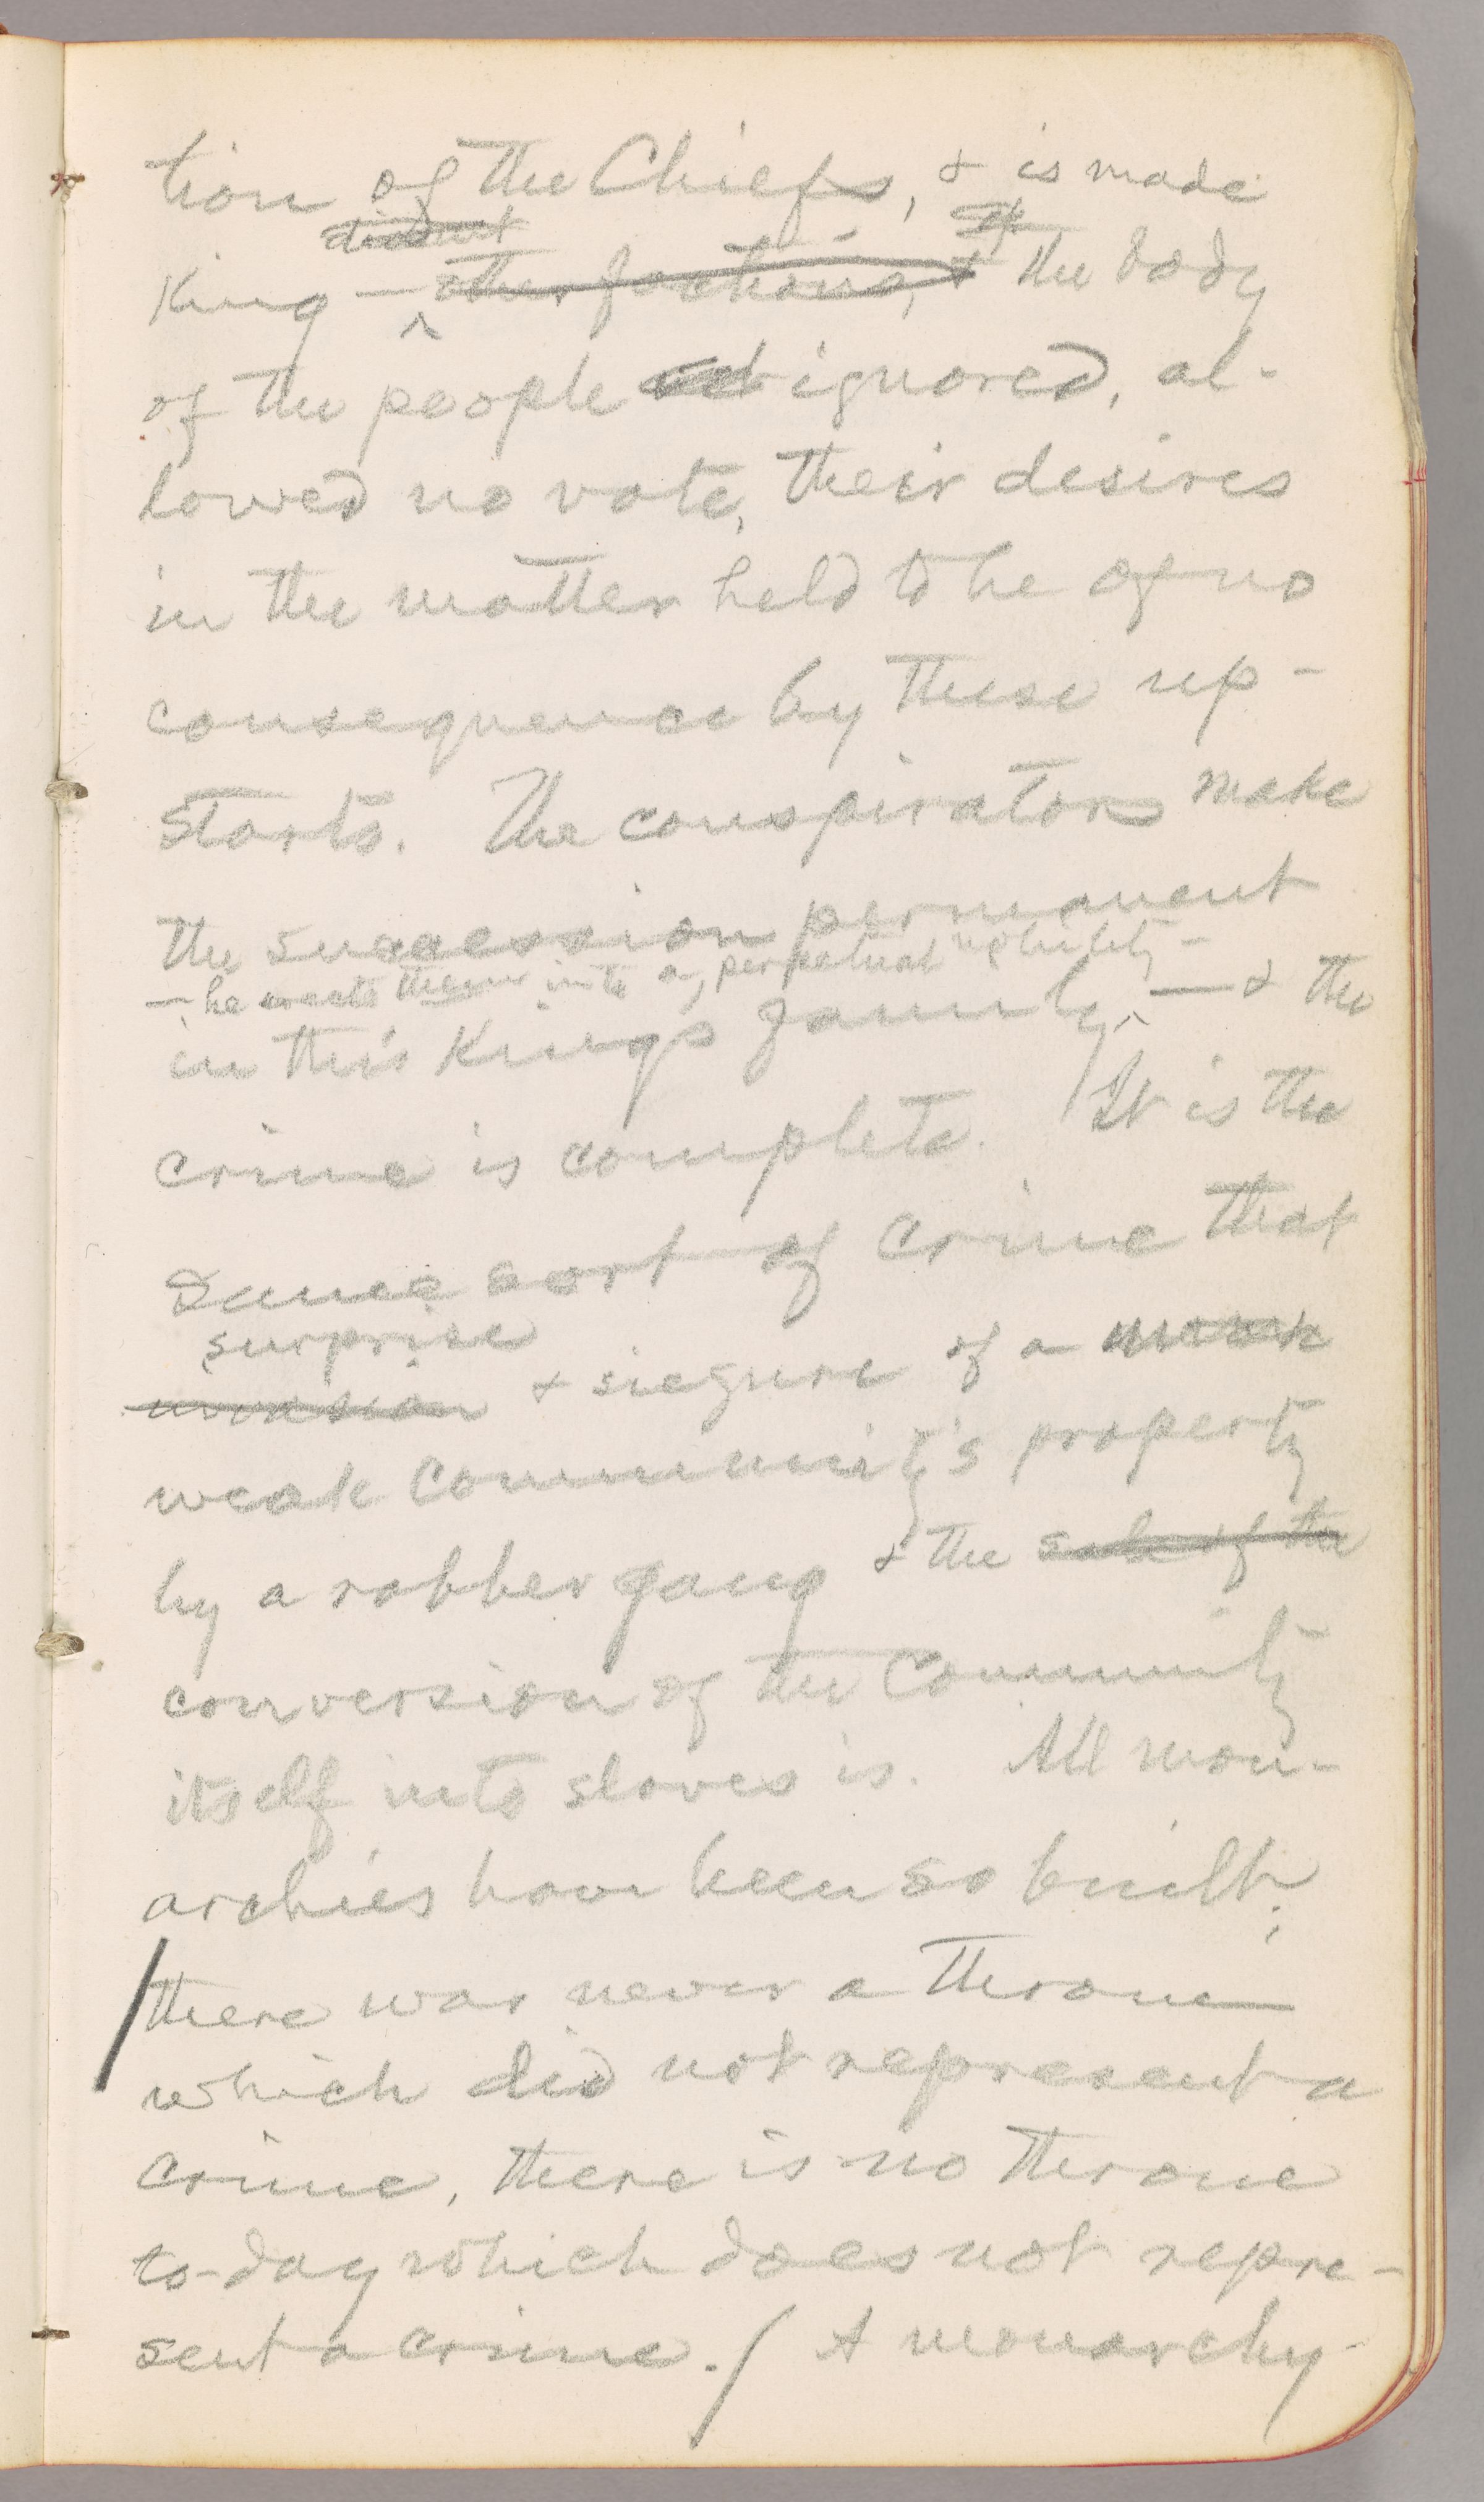 tion of the Chiefs, & is made
King — other factions, & the body
of the people ignored, al-
lowed no vote, their desires
in the matter held to be of no
consequence by these up-
starts. The conspirators make
the succession permanent
— he erects them into a perpetual nobility —
in this King's family, — & the
crime is complete. It is the
same sort of crime that
surprise
invasion & siezure of a weak
weak community's property
by a robber gang & the sale of the
conversion of the Community
itself into slaves is. All mon-
archies have been so built;
there was never a throne
which did not represent a
crime, there is no throne
to-day which does not repre-
sent a crime. / A monarchy